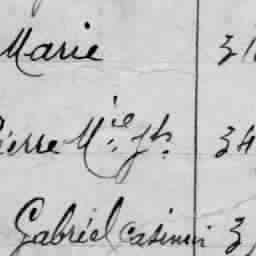 Marie 3
ierre M.ie Jh. 34
Gabriel Casimir 3